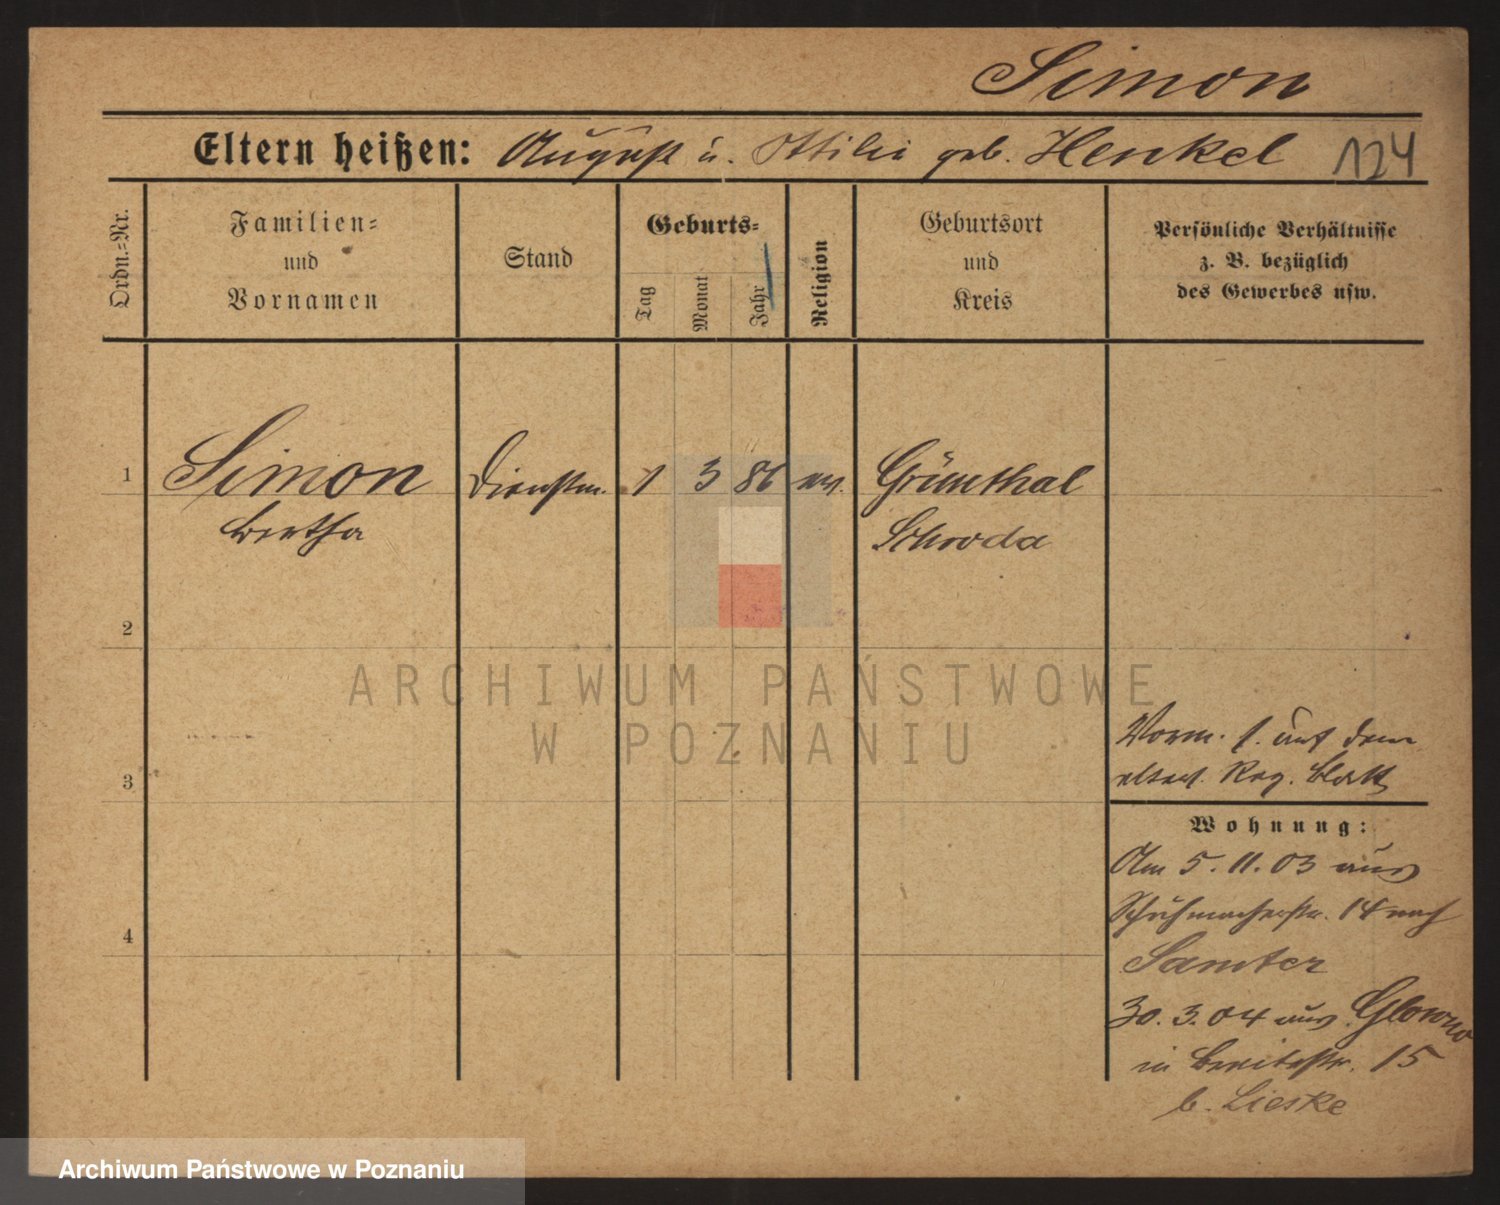 Simon
Eltern heißen: August u. Ottilie geb. Henkel 124
Ordn.-Nr.
Familien-
und
Vornamen
Stand
Geburts-
Tag
Monat
Jahr
Religion
Geburtsort
und
Kreis
Persönliche Verhältnisse
z. B. bezüglich
des Gewerbes usw.
1 Simon Dienstm. 1 3 86 ev. Grünthal
Bertha Schroda
2
ARCHIWUM PAŃSTWOWE
W POZNANIU
Vorm. s. auf dem
elterl. Reg. Blatt
3
Wohnung:
Am 5.11.03 aus
Schuhmacherstr. 14 nach
4
Samter
30.3.04 aus Glowno
in Breitestr. 15
b. Lieske
Archiwum Państwowe w Poznaniu